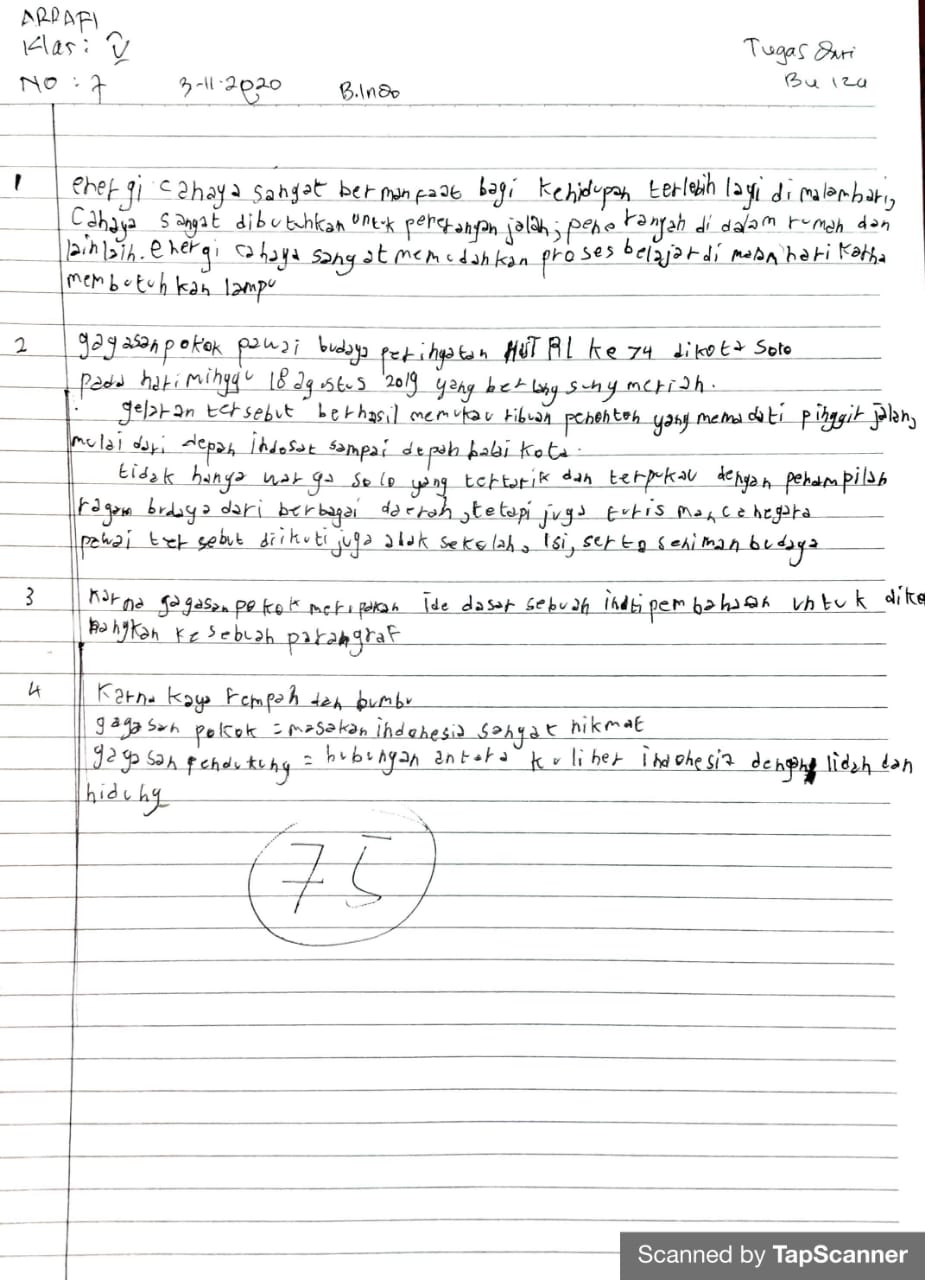 ARDAFI
Klas : V
Tugas Dari
Bu Iza
NO : 7 3-11-2020 B.Indo
1 energi cahaya sangat bermanfaat bagi kehidupan terlebih lagi di malamhari,
Cahaya sangat dibutuhkan untuk penerangan jalan, penerangan di dalam rumah dan
lain lain. energi cahaya sangat memudahkan proses belajar di malam hari karna
membutuhkan lampu
2 gagasan pokok pawai budaya peringatan HUT RI ke 74 dikota Solo
pada hari minggu 18 agustus 2019 yang berlangsung meriah.
gelaran tersebut berhasil memukau ribuan penonton yang memadati pinggir jalan,
mulai dari depan indosat sampai depan balai kota.
tidak hanya warga solo yang tertarik dan terpukau dengan penampilan
ragam budaya dari berbagai daerah, tetapi juga turis mancanegara
pawai tersebut diikuti juga anak sekolah, Isi, serta seniman budaya
3 Karna gagasan pokok merupakan ide dasar sebuah inti pembahasan untuk dike
bangkan kesebuah parangraf
4 Karna kaya rempah dan bumbu
gagasan pokok = masakan indonesia sangat nikmat
gagasan pendukung = hubungan antara kuliner indonesia dengan lidah dan
hidung
75
Scanned by TapScanner